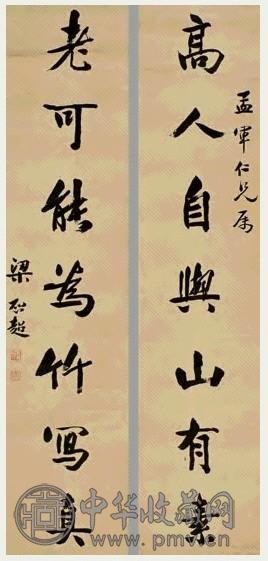 孟軍仁兄属
高人自與山有素
老可能為竹寫真
梁启超
中华收藏网
www.pmv.cn